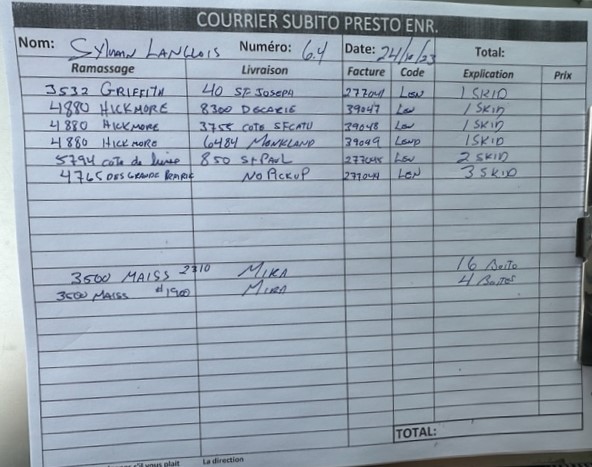 COURRIER SUBITO PRESTO ENR.
Nom: Sylvain LANGLOIS Numéro: 64 Date: 24/10/23 Total:
Ramassage Livraison Facture Code Explication Prix
3532 GRIFFITH 40 ST JOSEPH 277041 LON 1 SKID
4880 HICKMORE 8300 DECARIE 39047 LON 1 SKID
4880 HICKMORE 3755 COTE 39048 LON 1 SKID
4880 HICKMORE 6484 MONKLAND 39049 1 SKID
5794 COTE de 850 ST PAUL LON 2 SKID
4765 DES GRANDE NO PICKUP LON 3 SKID
3500 MAISS 2310 MIRA 16 Boite
3500 MAISS #1900 MIRA 4 Boites
TOTAL:
s'il vous plait La direction